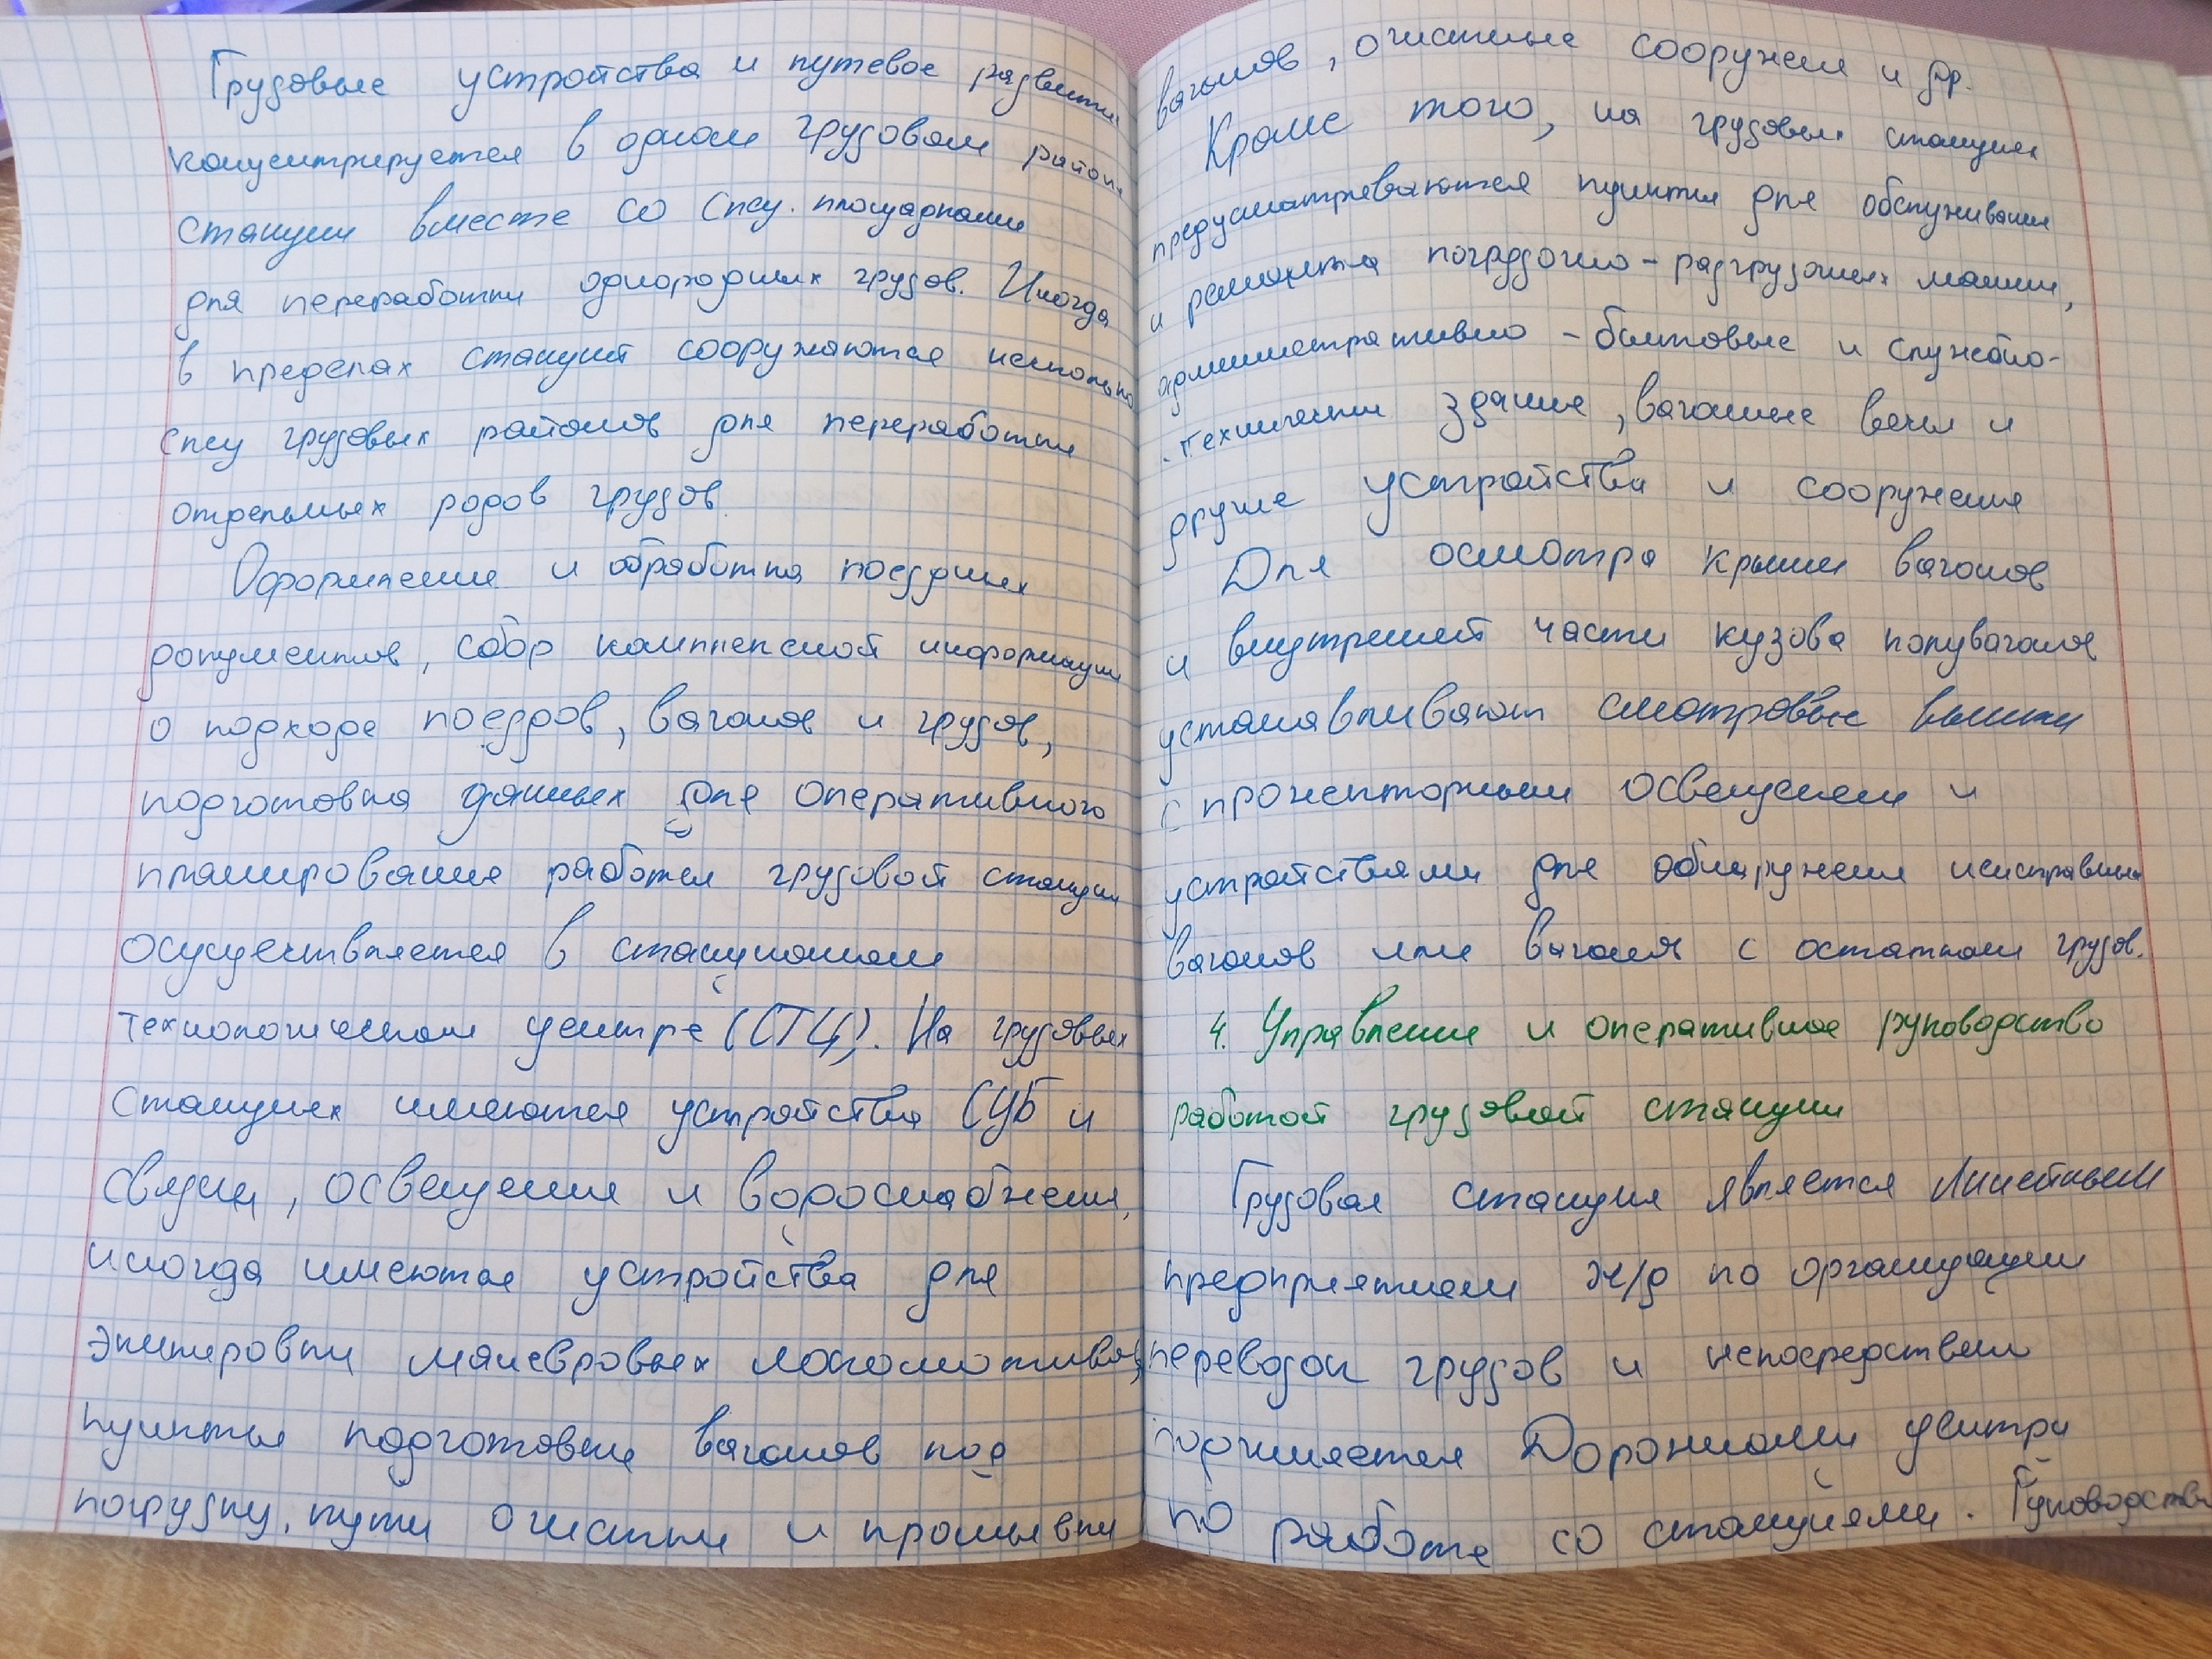 Грузовые устройства и путевое развитие
концентрируется в одном грузовом районе
станции вместе со спец. площадками
для переработки однородных грузов. Иногда
в пределах станций сооружаются несколько
спец грузовых районов для переработки
отдельных родов грузов.
Оформление и обработка поездных
документов, сбор комплексной информации
о подходе поездов, вагонов и грузов,
подготовка данных для оперативного
планирования работы грузовой станции
осуществляется в станционном
технологическом центре (СТЦ). На грузовых
станциях имеются устройства СУБ и
связи, освещения и водоснабжения,
иногда имеются устройства для
экипировки маневровых локомотивов,
пункты подготовки вагонов под
погрузку, пути очистки и промывки
вагонов, очистные сооружен и др.
Кроме того, на грузовых станциях
предусматреваются пункты для обслуживания
и ремонта погрузочно-разгрузочных машин,
административно-бытовые и служебно-
технически здание, вагонные весы и
другие устройства и сооружения
Для осмотра крыши вагонов
и внутренней части кузова полувагонов
устанавливают смотровые вышки
с прожекторным освещением и
устройствами для обнаружения неисправных
вагонов или вагоня с остатком грузов.
4. Управление и оперативное руководство
работой грузовой станции
Грузовая станция является линейным
предприятием ж/д по организации
перевозок грузов и непосредственно
подчиняется Дорожному центру
по работе со станциями. Руководство